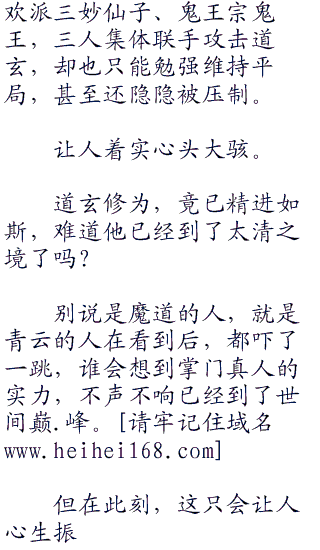 欢派三妙仙子、鬼王宗鬼
王，三人集体联手攻击道
玄，却也只能勉强维持平
局，甚至还隐隐被压制。
让人着实心头大骇。
道玄修为，竟已精进如
斯，难道他已经到了太清之
境了吗？
别说是魔道的人，就是
青云的人在看到后，都吓了
一跳，谁会想到掌门真人的
实力，不声不响已经到了世
间巅.峰。[请牢记住域名
www.heihei168.com]
但在此刻，这只会让人
心生振